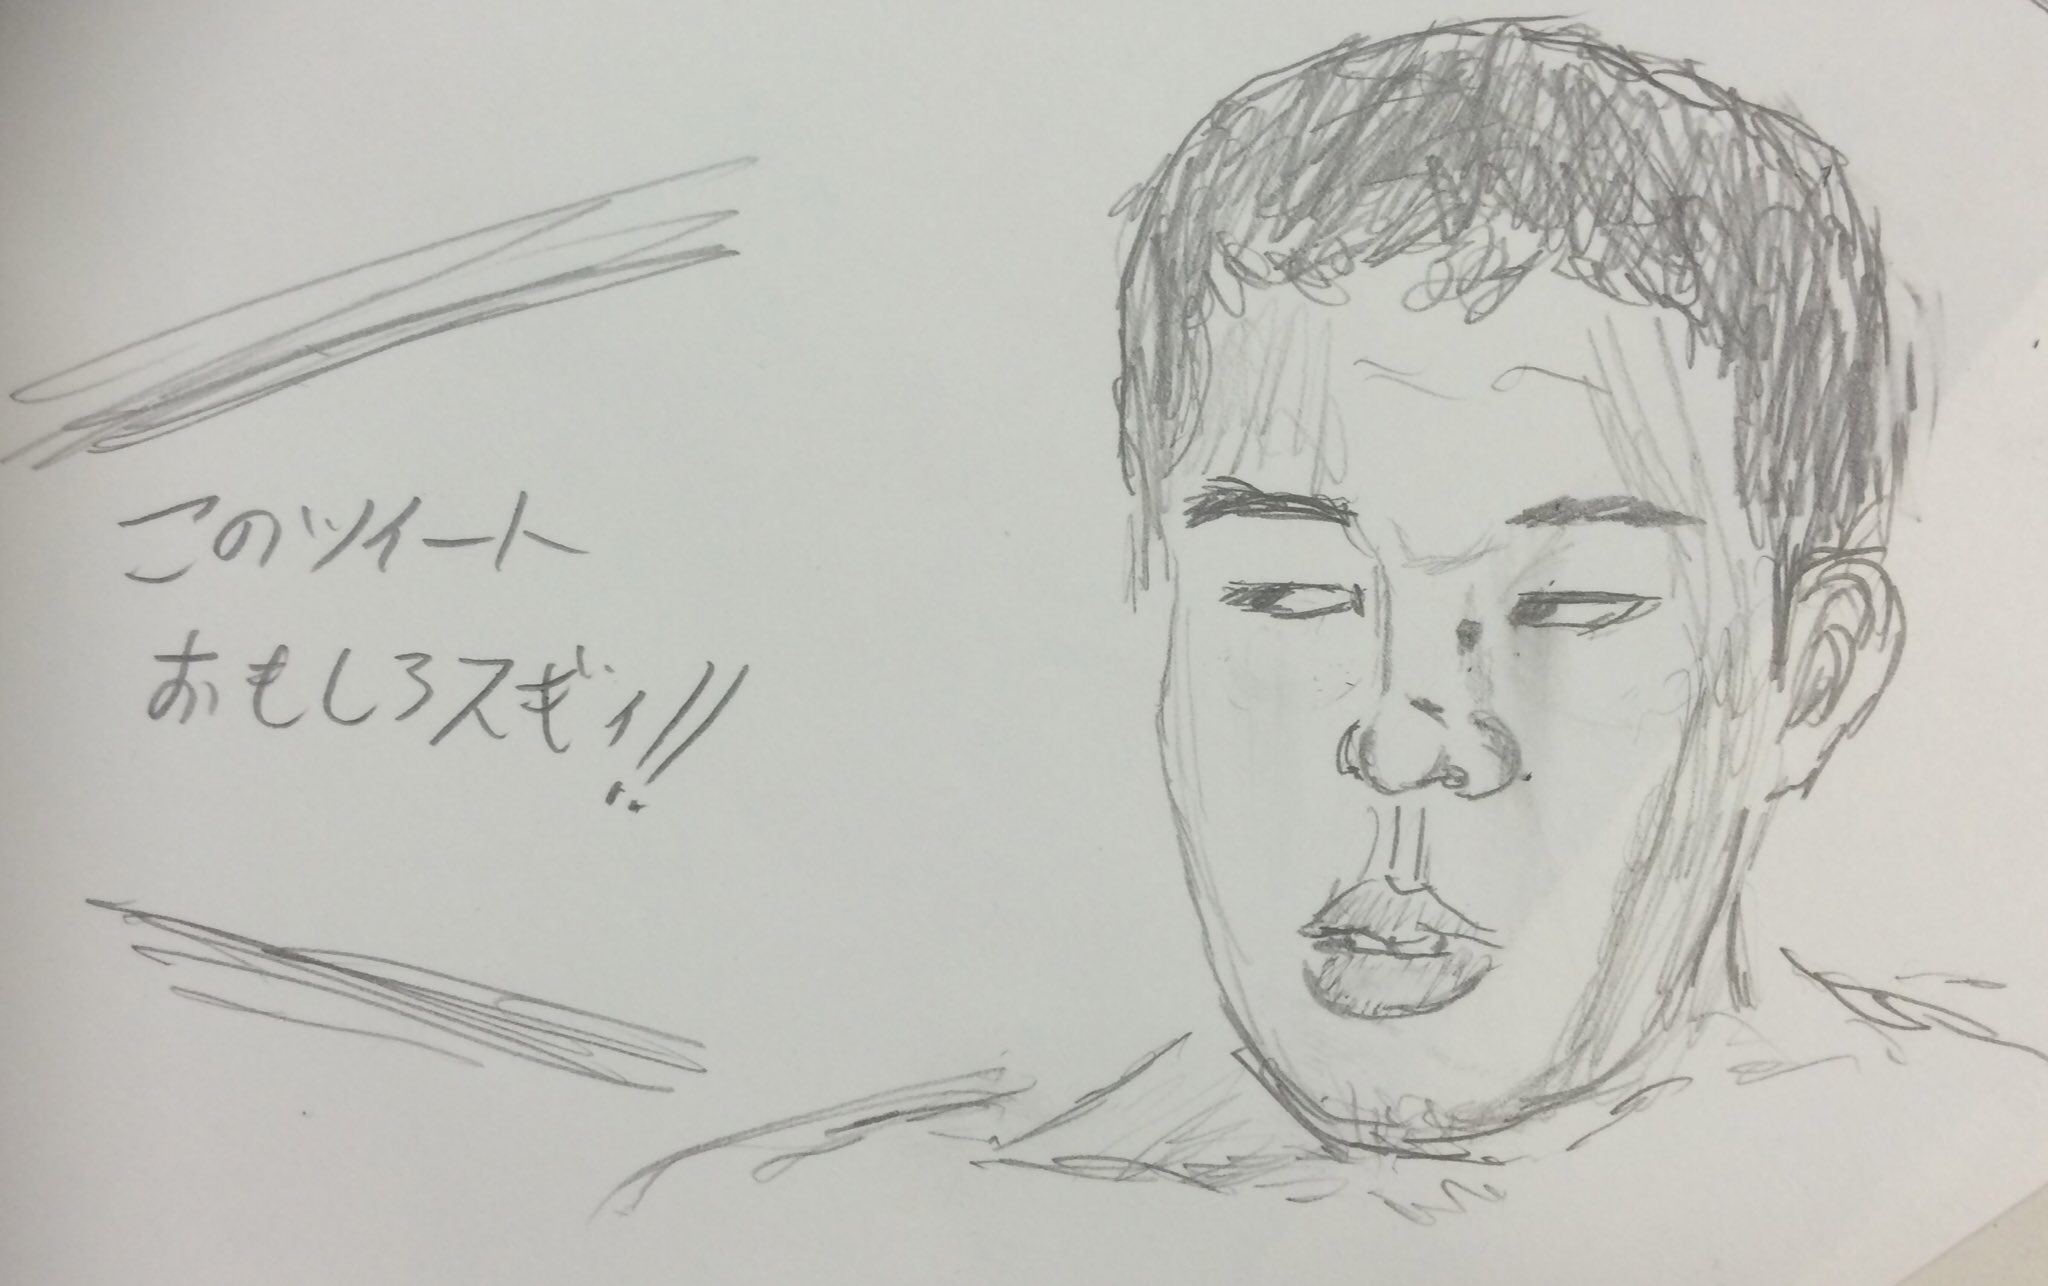 このツイート
おもしろスギィ!!